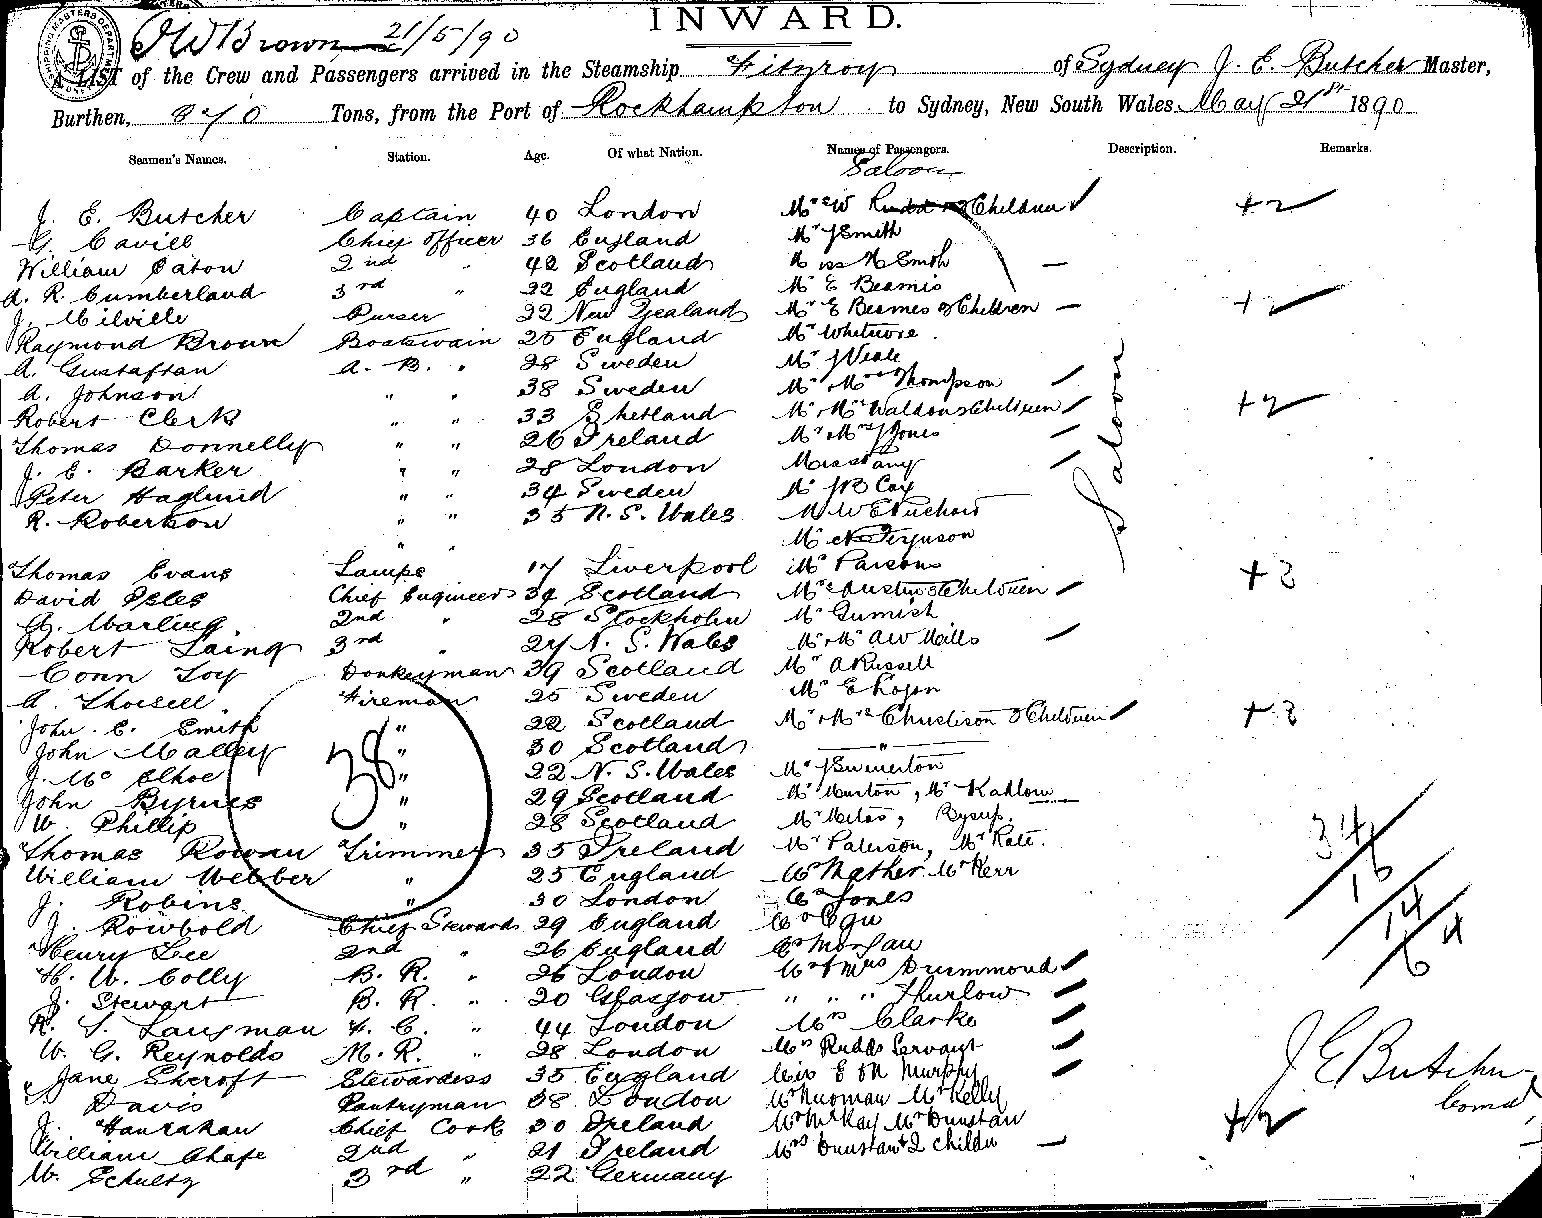 INWARD.
J W Brown 21/5/90
A LIST of the Crew and Passengers arrived in the Steamship Fitzroy of Sydney J. E. Butcher Master,
Burthen, 870 Tons, from the Port of Rockhampton to Sydney, New South Wales May 21st 1890
Seamen's Names. Station. Age. Of what Nation. Names of Passengers. Description. Remarks.
Saloon
J. E. Butcher Captain 40 London Mrs W Rudd & Children +2
G. Cavill Chief Officer 36 England Mr J Smith
William Eaton 2nd " 42 Scotland Miss M Smith
A. R. Cumberland 3rd " 22 England Mr E Beamis
J. Milville Purser 22 New Zealand Mrs E Beames & Children +2
Raymond Brown Boatswain 25 England Mr Whitmore
A. Gustafson A. B. " 28 Sweden Mr J Veale
A. Johnson " " 38 Sweden Mr & Mrs Thompson
Robert Clerk " " 33 Shetland Mr & Mrs Waldon & Children +2
Thomas Donnelly " " 26 Ireland Mr & Mrs J Jones
J. E. Barker " " 28 London Miss
Peter Haglund " " 34 Sweden Mr J B Cay
R. Robertson " " 35 N. S. Wales M W E
" " Mr N Ferguson
Saloon
Thomas Evans Lamps 17 Liverpool Mr Parsons +3
David Chief Engineer 34 Scotland Mrs Austin & Children
2nd " 28 Stockholm Mr
Robert Laing 3rd " 27 N. S. Wales Mr & Mrs A W Mills
Conn Loy Donkeyman 39 Scotland Mr A Russell
A. Fireman 25 Sweden Mr E Logan
John. E. Smith " 22 Scotland Mr & Mrs Christison & Children +3
John Malley " 30 Scotland "
38
J. Mc Elhoe " 22 N. S. Wales Mr J
John Byrnes " 29 Scotland Mr Murton, Mr
W. Phillip " 28 Scotland Mr
Thomas Rowan Trimmer 35 Ireland Mr Paterson, Mr
William Webber " 25 England Mr Mather Mr Kerr
J. Robins " 30 London Jones
J. Rowbold Chief Steward 29 England
Henry Lee 2nd " 26 England Morgan
H. W. Colly B. R. " 26 London Mr & Mrs Drummond
J. Stewart B. R. " 20 Glasgow " " " Thurlow
R. S. Langman F. C. " 44 London Mrs Clarke
W. G. Reynolds M. R. " 28 London Mrs Rudds Servant
Jane Stewardess 35 England Miss E M Murphy
Davis Pantryman 38 London Mr Mr Kelly
J. Hanrahan Chief Cook 30 Ireland Mr McKay Mr Dunstan
William Chape 2nd " 21 Ireland Mrs Dunstan & 2 childn +2
W. Schultz 3rd " 22 Germany
34
16
14
64
J E Butcher